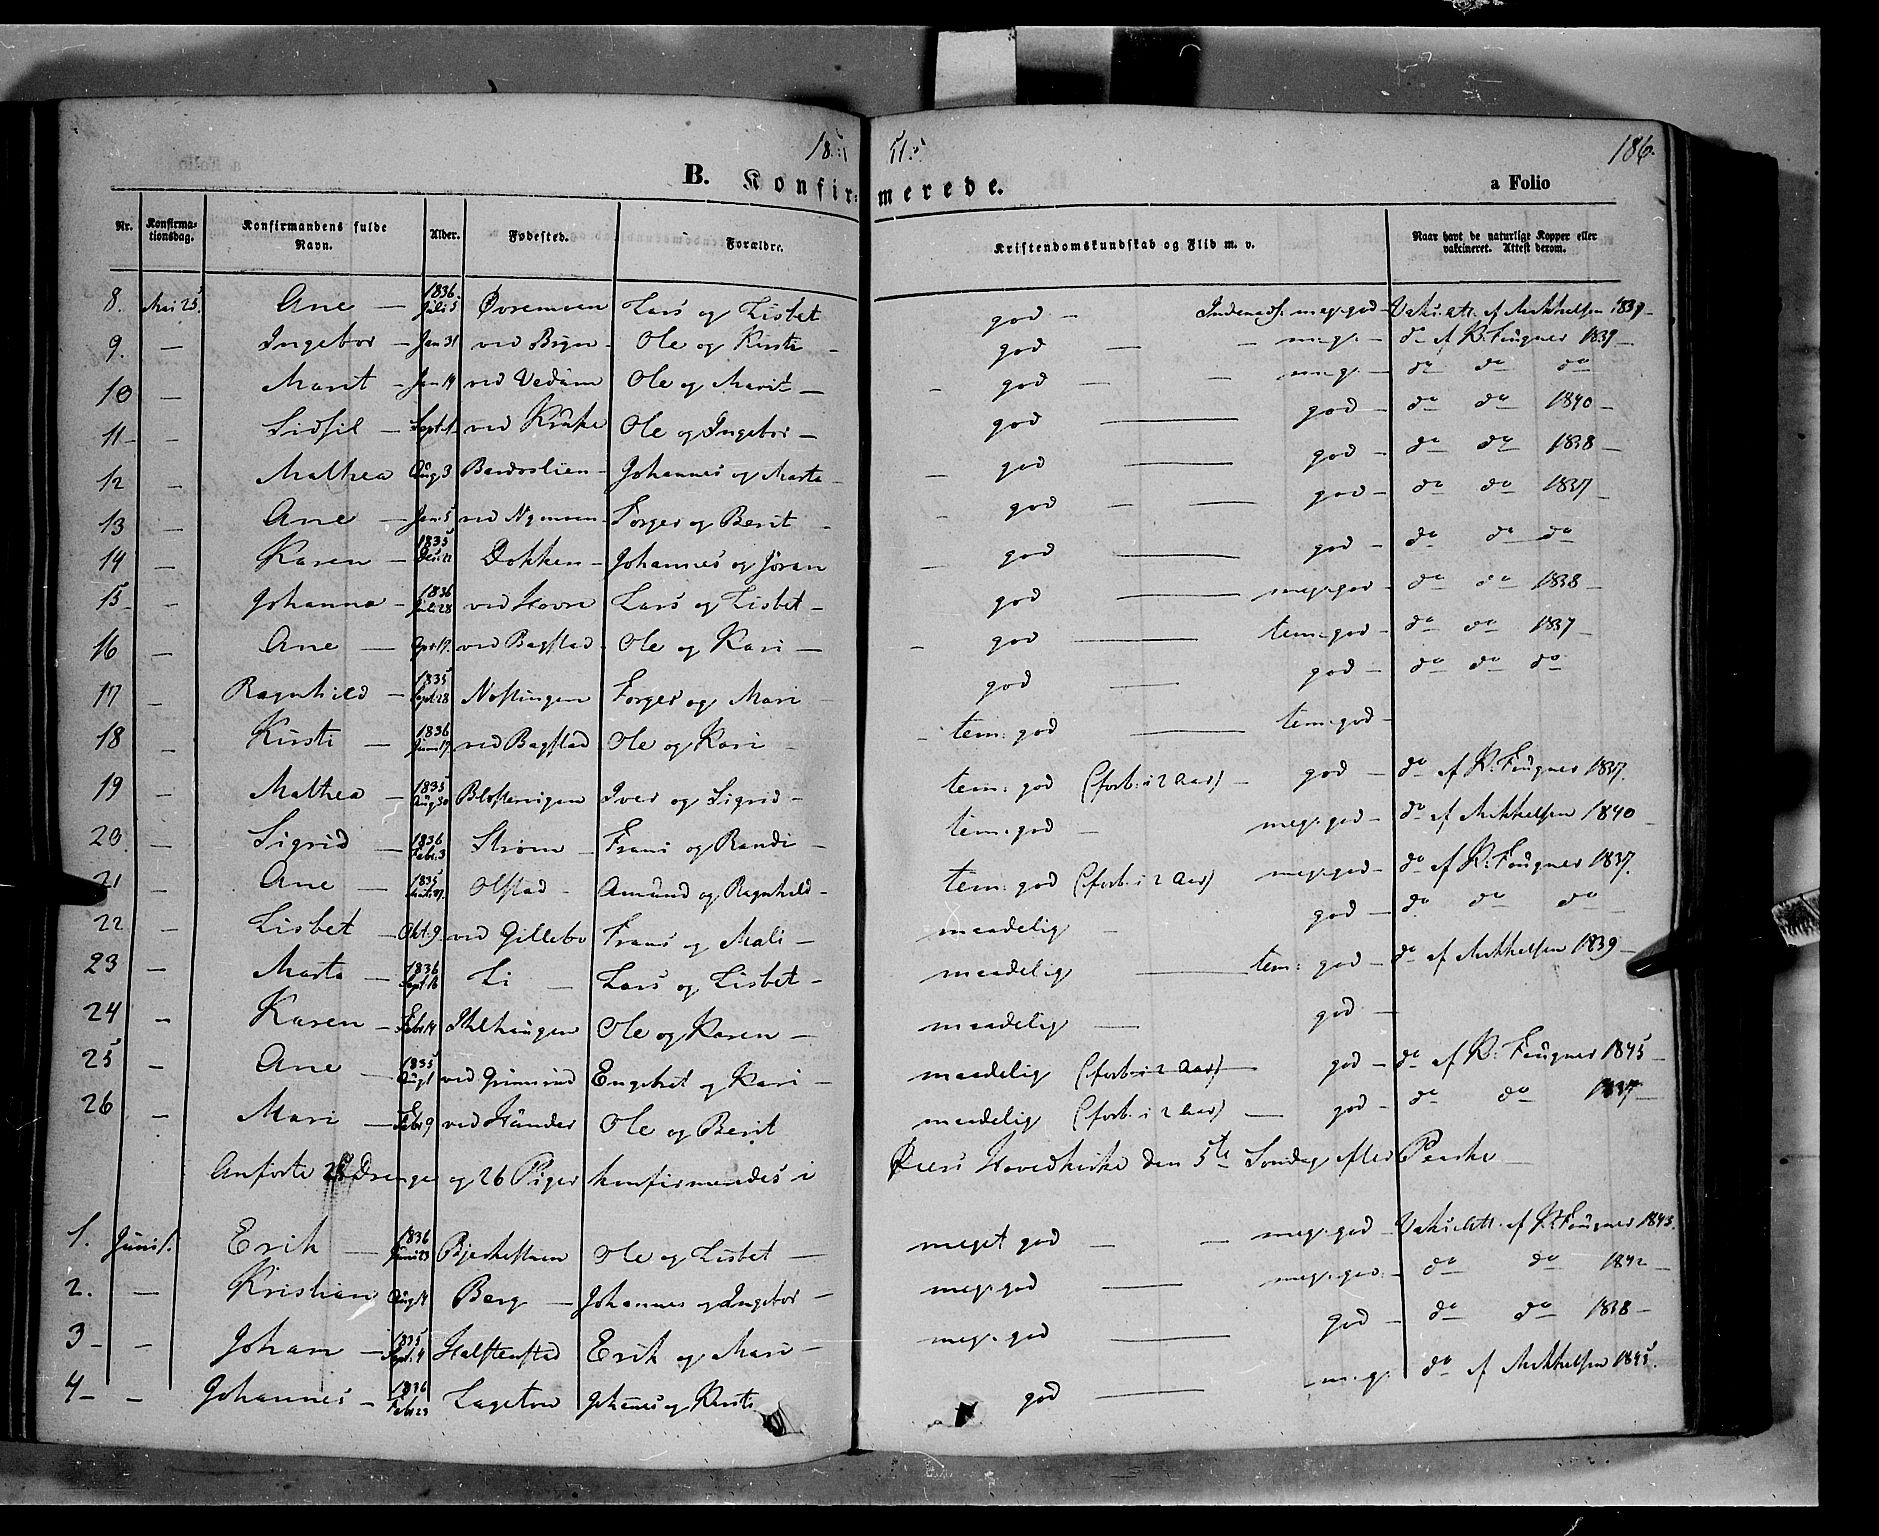 1851. 186.
B. Konfirmerede. a Folio
Nr. Konfirmationsdag. Konfirmandens fulde Navn. Alder. Fødested. Forældre. Kristendomskundskab og Flid m. v. Naar havt de naturlige Kopper eller vakcineret. Attest derom.
8. Mai 25. Ane — 1836 Juli 5 Øvremoen Lars og Lisbet god — meg: god — Vaks: att: af Mikkelsen 1839 —
9. — Ingebor — Jan 31 ved Bryn — Ole og Kirsti — god — — m: g: — do af K: Faugner 1837 —
10 — Marit — Jan 14 ved Vedum Ole og Marit — god — — m: g: — do do do
11 — — Sidsil — Sept: 1 ved Kruke Ole og Ingebor — god — god — do do 1840 —
12 — Mathea Aug 3 Baardslien — Johannes og Marta — god — god — do do 1838 —
13 — Ane — Jan: 5 ved Nymoen — Torger og Berit — god — god — do do 1837 —
14 — Karen — 1835 Des: 22 Dokken — Johannes og Jöran god — god — do do do
15 — — Johanna — 1836 Juli 28 ved Hovre Lars og Lisbet — god — meg: god — do do 1838 —
16 — Ane — ved Bagstad — Ole og Kari — god — tem: god — do do 1837 —
17 — Ragnhild — 1835 Sept: 28 Nostingen Torger og Mari god — god — do do do
18 — Kirsti — 1836 Juni 17 ved Bagstad Ole og Kari — tem: god — tem: god —
19 — Mathea — 1835 Aug 30 Iver og Sigrid — tem: god (forb: i 2 Aar) — god — do af K: Faugner 1837.
20. — Sigrid — 1836 Febr: 3 Strøm — Frans og Randi — tem: god — meg: god — do af Mikkelsen 1840 —
21 — Ane — 1835 Olstad — Amund og Ragnhild — tem: god (forb: i 2 Aar) meg: god — do af K: Faugner 1837.
22 — Lisbet — Okt: 9 ved Gillebo Frans og Mali — maadelig — god — do do do
23 — Marta — 1836 Sept: 16 Li — Lars og Lisbet — maadelig — tem: god — do af Mikkelsen 1839 —
24 — Karen — Febr 14 Ole og Karen — maadelig — god —
25 — Ane — 1835 Aug 1 ved Grimsrud Engebret og Kari — maadelig (forb: i 2 Aar) — god — do af K: Faugner 1845 —
26 — Mari — Febr 9 ved Sünder Ole og Berit maadelig (forb: i 2 Aar) — god — do do 1837 —
Anførte Drenge og 26 Piger konfirmeredes i Øiers Hovedkirke den 5te Søndag efter Paaske —
1. Juni 1. Erik — 1836 Juni 23 Bjerkestuen Ole og Lisbet — meget god — — meg: god — Vaks: att: af K: Faugner 1843.
2. — Kristian Aug 14 Berg — Johannes og Ingebor — meg: god — meg: god — do do 1842 —
3 — — Johan — 1835 Sept: 4 Halstenstad Erik og Mari — meg: god — god — do do 1838 —
4 — — Johannes — 1836 Febr 23 Lagetoe Johanes og Kirsti god — m: g: do af Mikkelsen 1845.